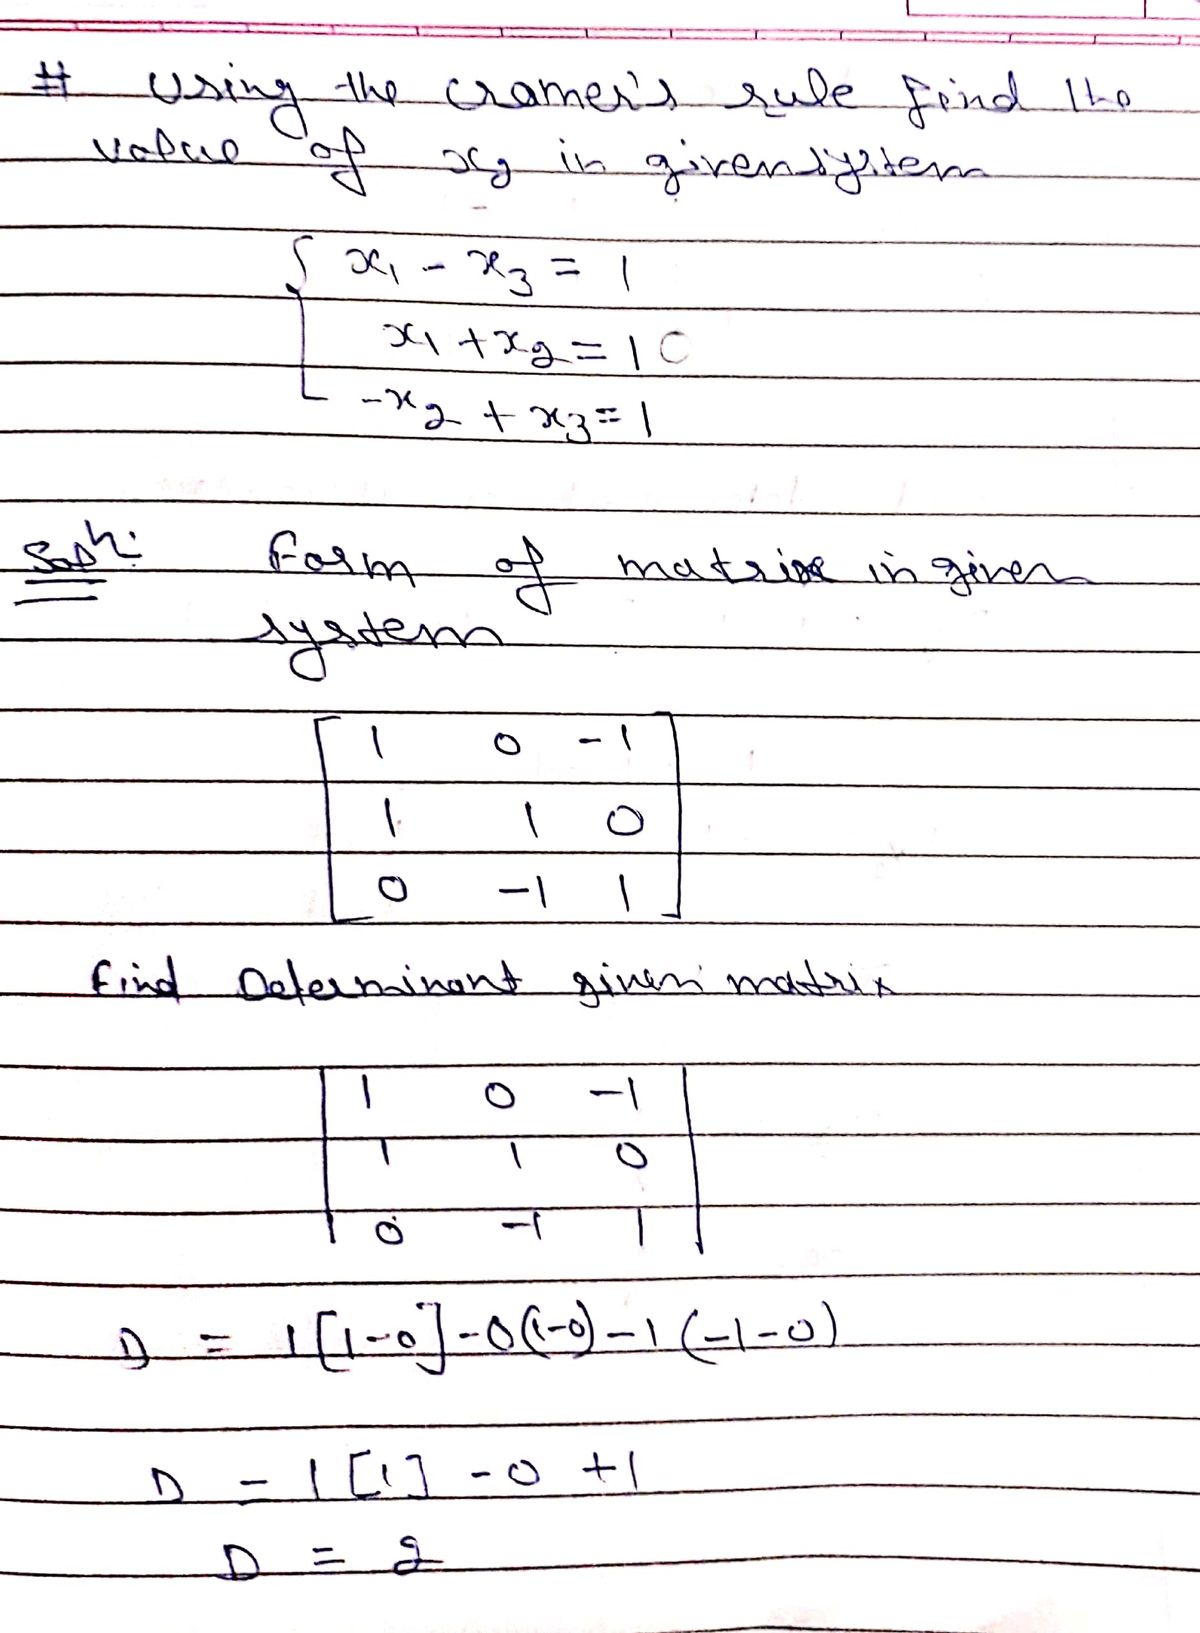 # Using the cramer's rule find the
value of x2 in given system
x1 - x3 = 1
x1 + x2 = 10
-x2 + x3 = 1
Solⁿ: Form of matrix in given
system
1 0 -1
1 1 0
0 -1 1
Find Determinant given matrix
1 0 -1
1 1 0
0 -1 1
D = 1[1-0]-0(1-0)-1(-1-0)
D = 1[1] - 0 + 1
D = 2